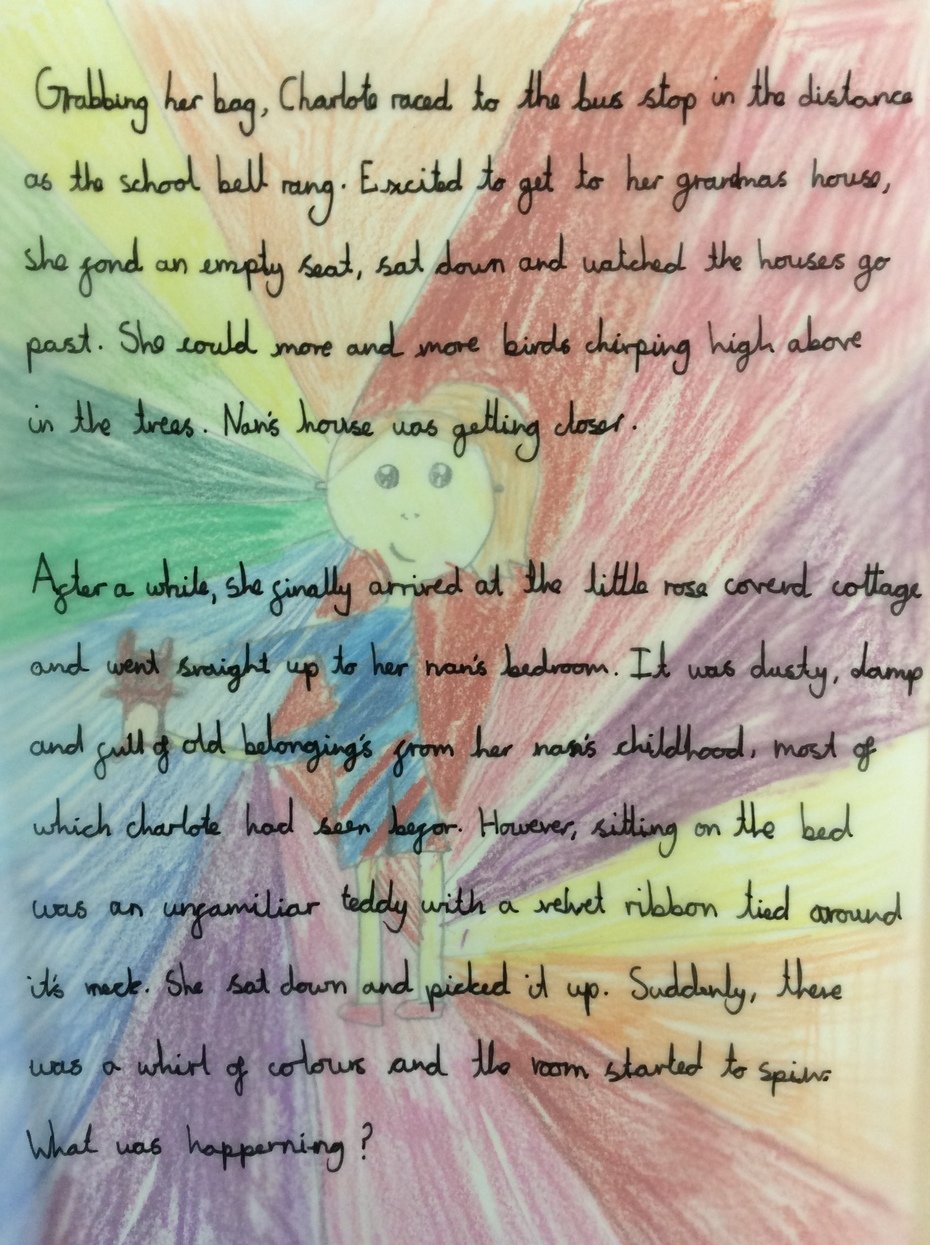 Grabbing her bag, Charlote raced to the bus stop in the distance
as the school bell rang. Excited to get to her grandmas house,
she fond an empty seat, sat down and watched the houses go
past. She could more and more birds chirping high above
in the trees. Nan's house was getting closer.
After a while, she finally arrived at the little rose coverd cottage
and went sraight up to her nan's bedroom. It was dusty, damp
and full of old belonging's from her nan's childhood, most of
which charlote had seen befor. However, sitting on the bed
was an unfamiliar teddy with a velvet ribbon tied around
it's neck. She sat down and picked it up. Suddenly, there
was a whirl of colours and the room started to spin.
What was happerning?